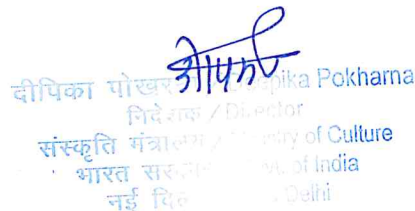 दीपिका पोखर Deepika Pokharna
निदेशक / Director
संस्कृति मंत्रालय / Ministry of Culture
भारत सरकार Govt. of India
नई दिल्ली Delhi